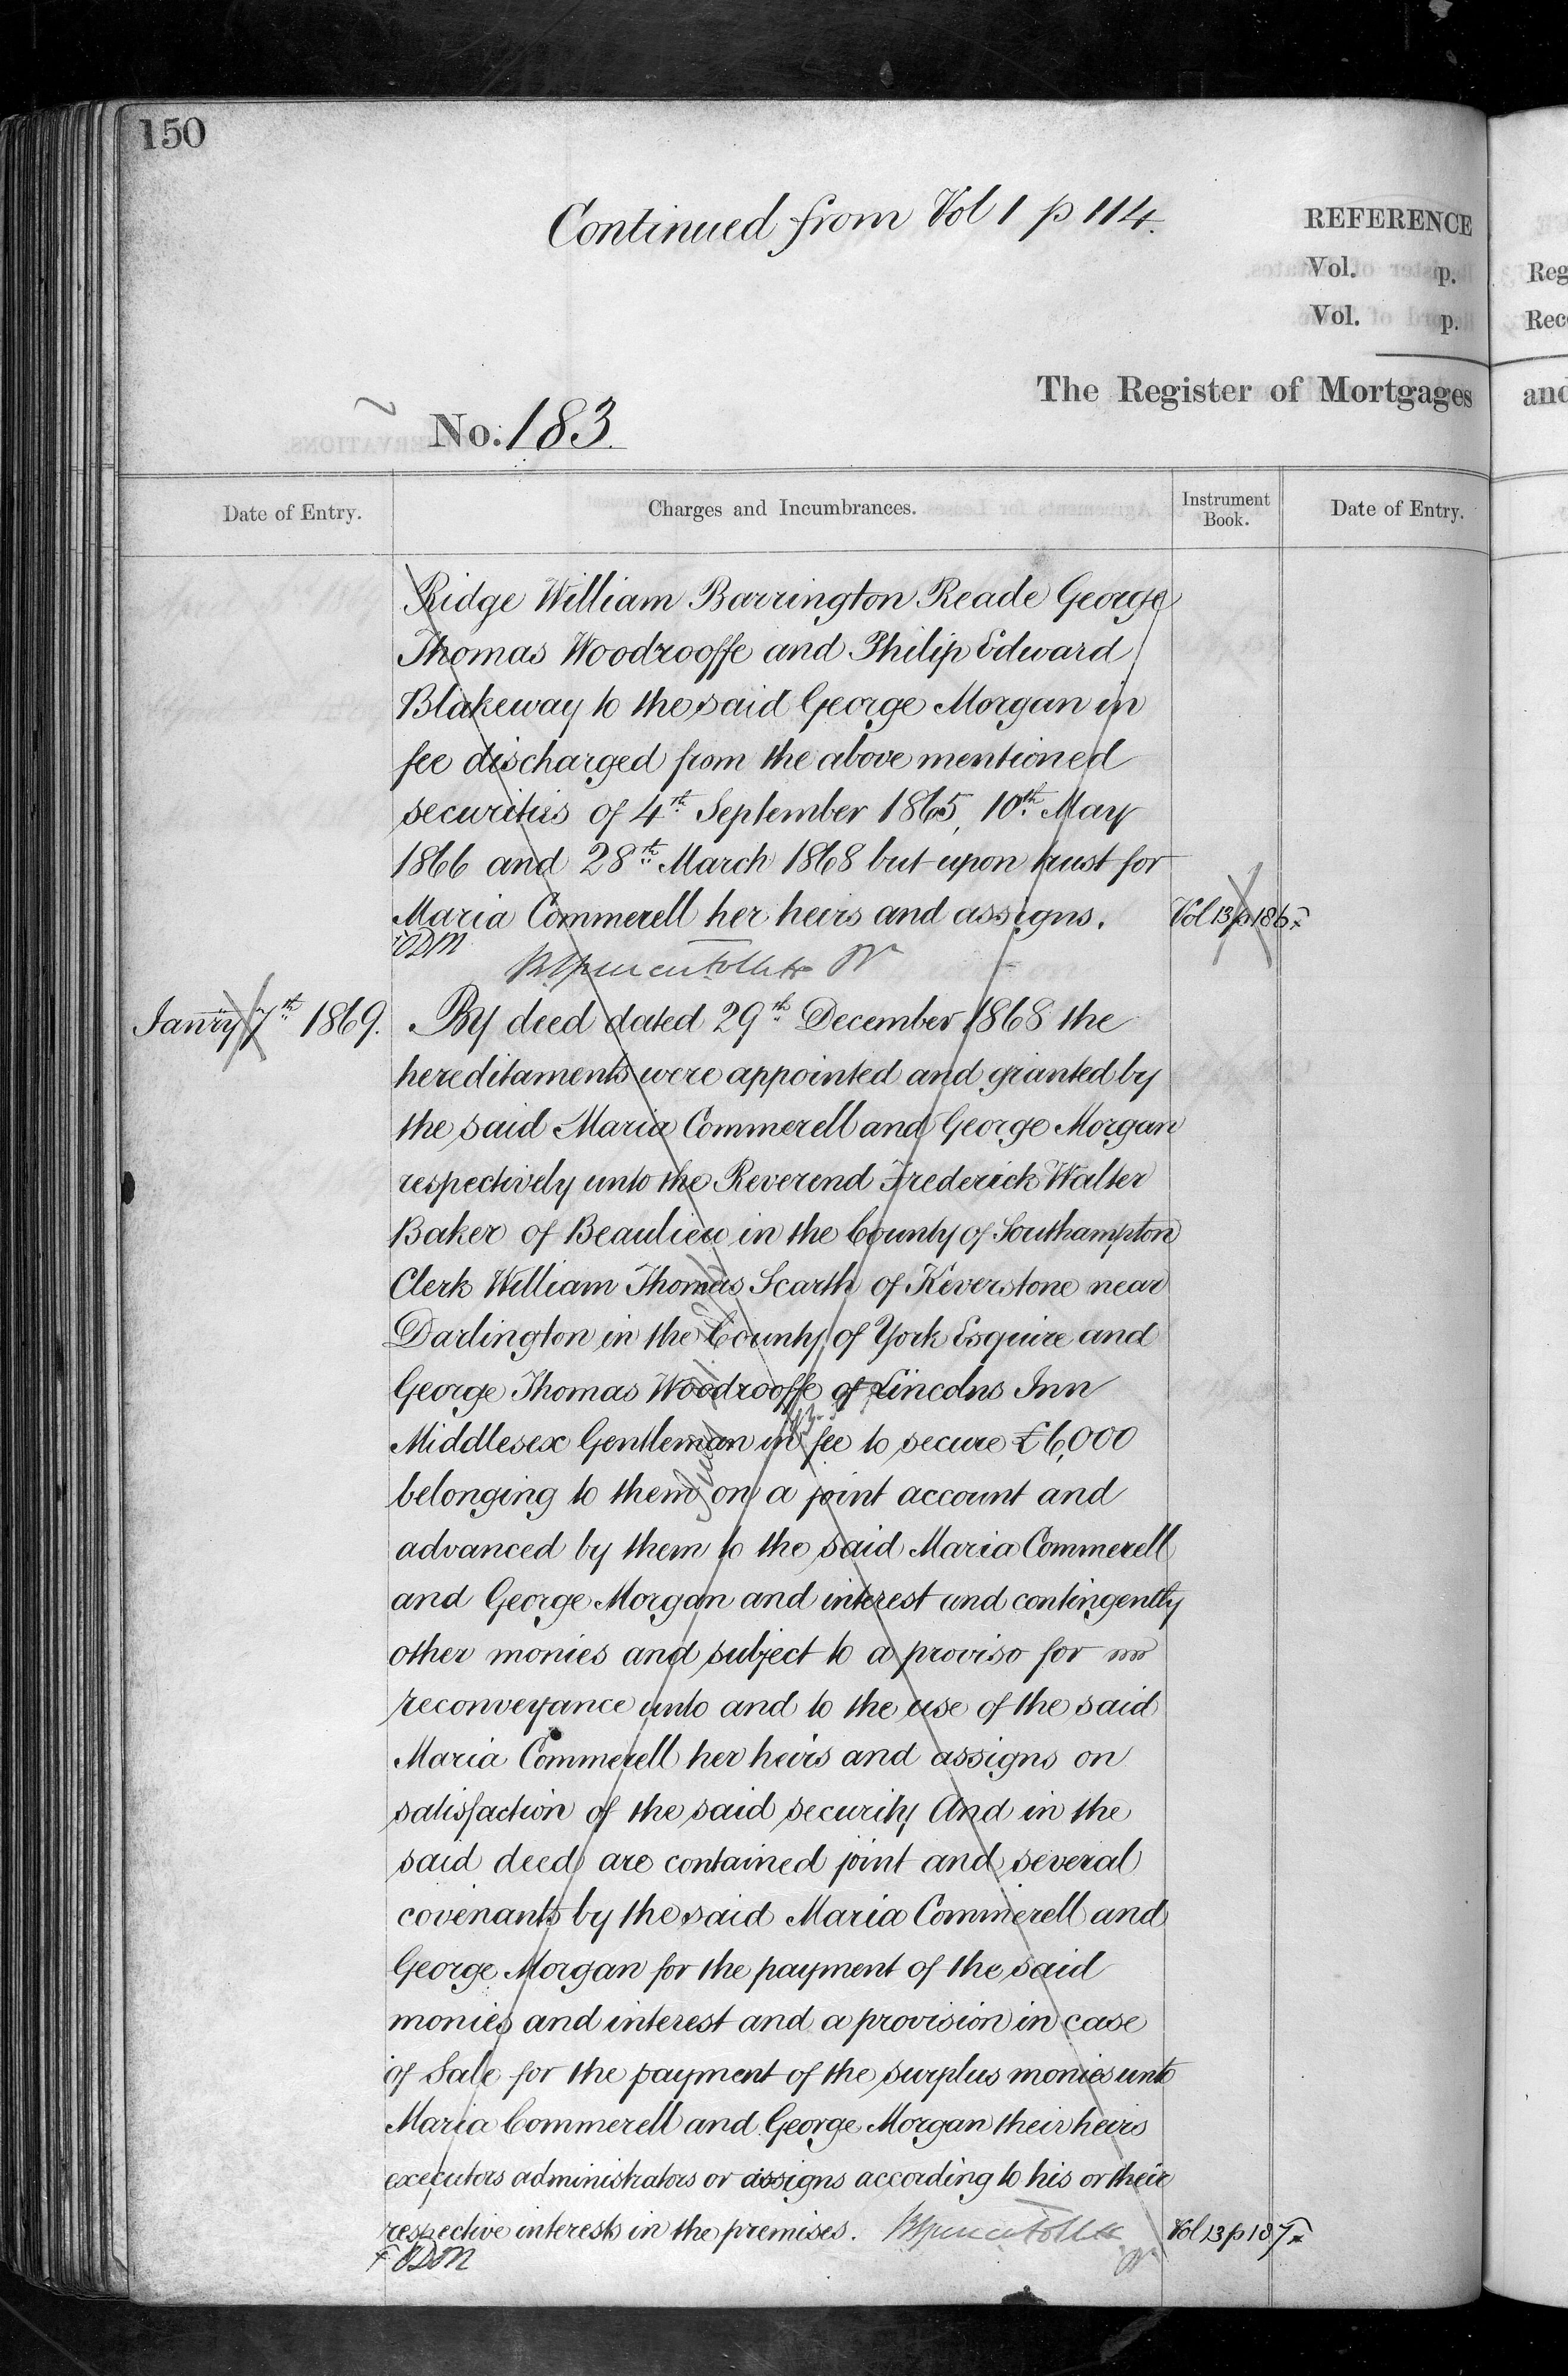 150
Continued from Vol 1 p 114.
REFERENCE
Vol. p.
Vol. p.
Reg
Rec
The Register of Mortgages
and
No. 183.
Date of Entry.
Charges and Incumbrances.
Instrument Book.
Date of Entry.
Ridge William Barrington Reade George
Thomas Woodrooffe and Philip Edward
Blakeway to the said George Morgan in
fee discharged from the above mentioned
securities of 4th September 1865, 10th May
1866 and 28th March 1868 but upon trust for
Maria Commerell her heirs and assigns. Vol 13 p 186
ODM
Janry 7th 1869. By deed dated 29th December 1868 the
hereditaments were appointed and granted by
the said Maria Commerell and George Morgan
respectively unto the Reverend Frederick Walter
Baker of Beaulieu in the County of Southampton
Clerk William Thomas Scarth of Keverstone near
Darlington in the County of York Esquire and
George Thomas Woodrooffe of Lincolns Inn
Middlesex Gentleman in fee to secure £6,000
belonging to them on a joint account and
advanced by them to the said Maria Commerell
and George Morgan and interest and contingently
other monies and subject to a proviso for
reconveyance unto and to the use of the said
Maria Commerell her heirs and assigns on
satisfaction of the said security And in the
said deed are contained joint and several
covenants by the said Maria Commerell and
George Morgan for the payment of the said
monies and interest and a provision in case
of Sale for the payment of the surplus monies unto
Maria Commerell and George Morgan their heirs
executors administrators or assigns according to his or their
respective interests in the premises. Vol 13 p 187
ODM